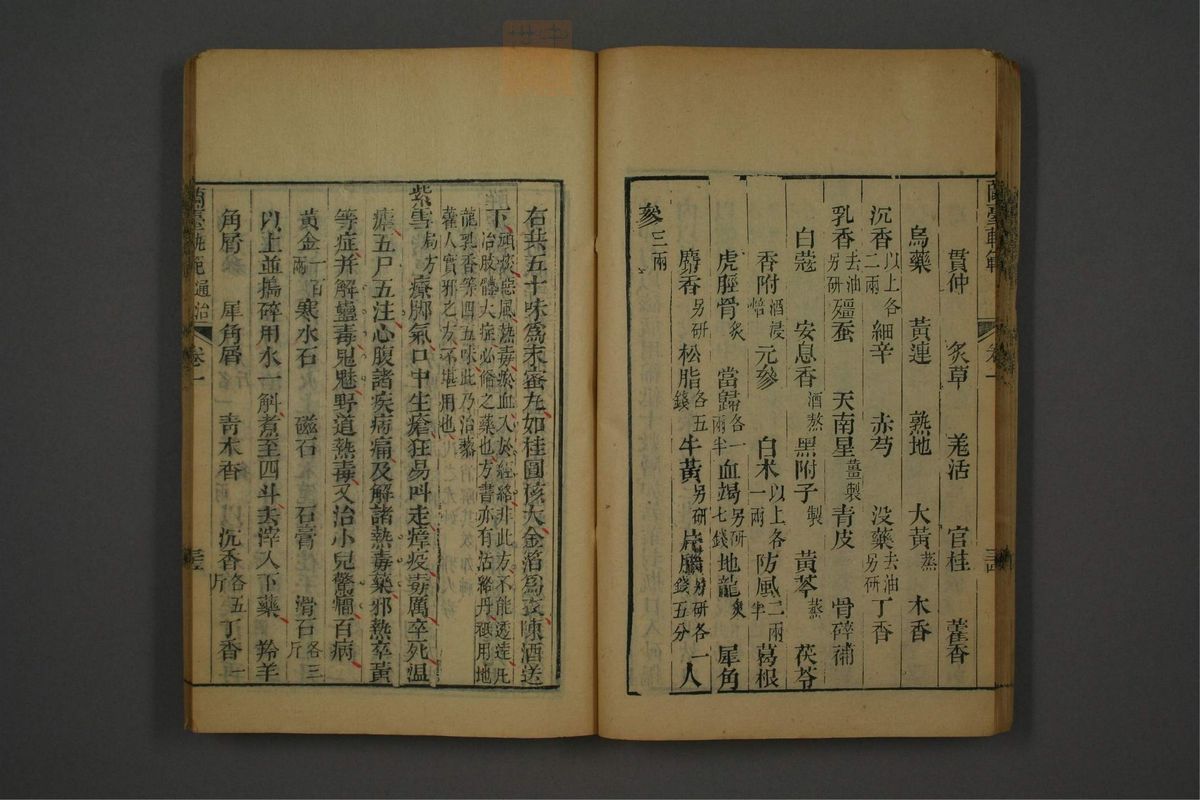 蘭臺軌範 卷一
貫仲 炙草 羌活 官桂 藿香
烏藥 黃連 熟地 大黃蒸 木香
沉香以上各二兩 細辛 赤芍 没藥去油另研 丁香
乳香去油另研 殭蚕 天南星薑製 青皮 骨碎補
白蔻 安息香酒熬 黑附子製 黃芩蒸 茯苓
香附酒浸焙 元參 白术以上各一兩 防風二兩半 葛根
虎脛骨炙 當歸各一兩半 血竭另研七錢 地龍炙 犀角
麝香另研 松脂各五錢 牛黃另研 片腦另研各錢五分 人
參三兩
右共五十味爲末蜜丸如桂圓核大金箔爲衣陳酒送
下頑痰惡風熱毒瘀血入於經絡非此方不能透達凡治肢體大症必備之藥也方書亦有活絡丹秪用地
龍乳香等四五味此乃治藜藿人實邪之方不堪用也
紫雪局方療脚氣口中生瘡狂易叫走瘴疫毒厲卒死温
瘧五尸五注心腹諸疾㽲痛及解諸熱毒藥邪熱卒黃
等症并解蠱毒鬼魅野道熱毒又治小兒驚癇百病
黃金一百兩 寒水石 磁石 石膏 滑石各三斤
以上並搗碎用水一斛煮至四斗去滓入下藥 羚羊
角屑 犀角屑 青木香 沉香各五斤 丁香一
蘭臺軌範通治 卷一